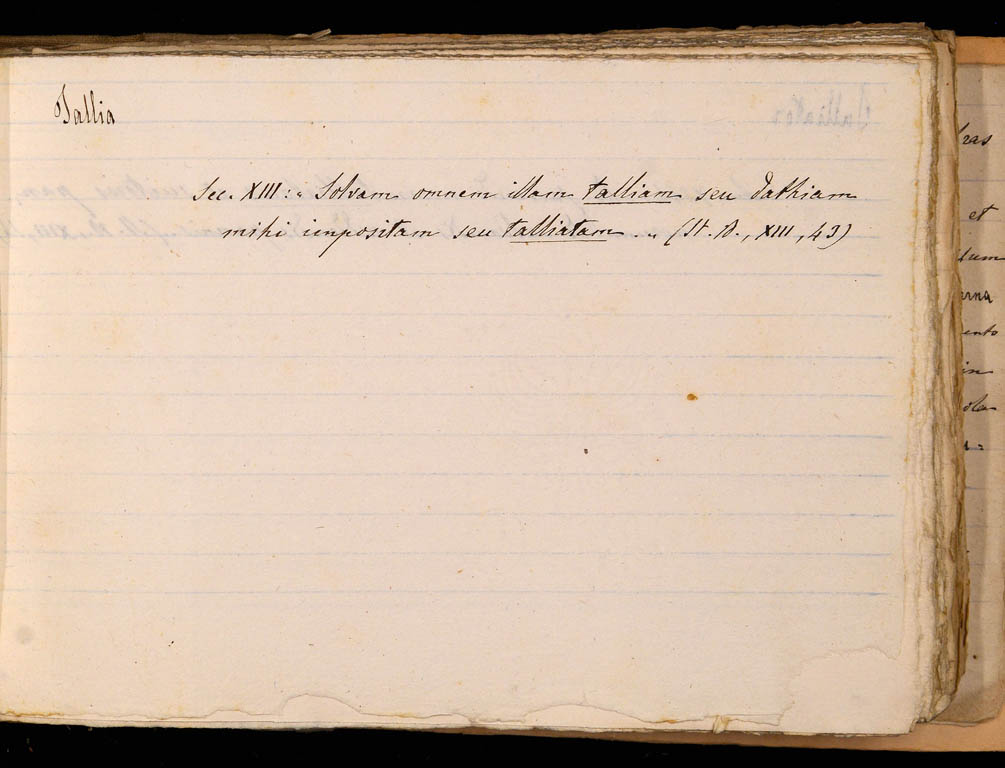 Tallia
Sec. XIII: „ Solvam omnem illam talliam seu dathiam
mihi impositam seu talliatam .. (St. B., XIII, 43)
ras
et